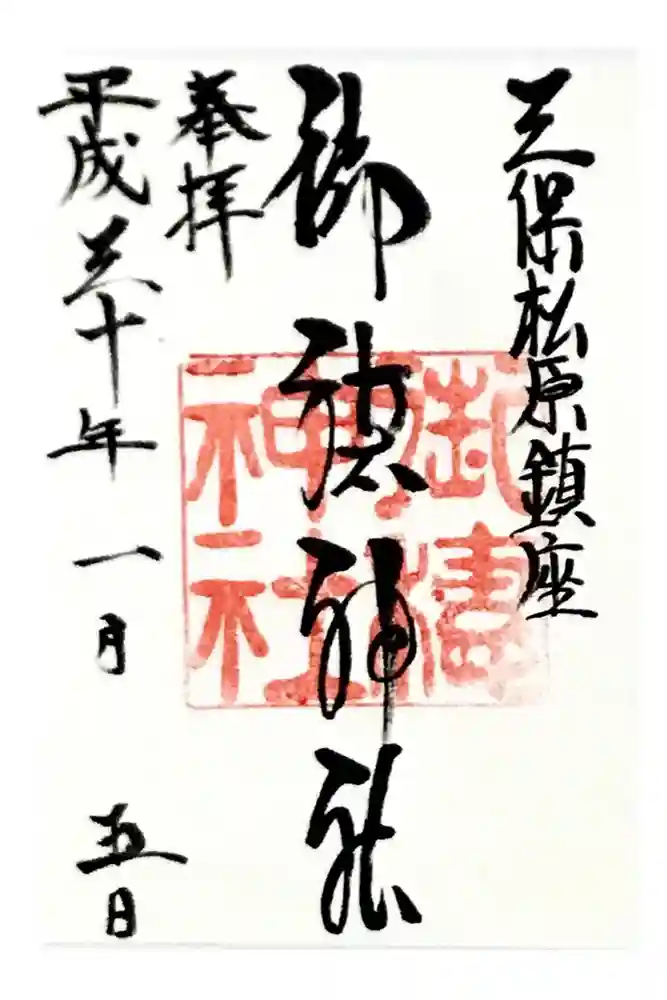 三保松原鎮座
御穂神社
奉拝
平成三十年一月五日
御穂神社